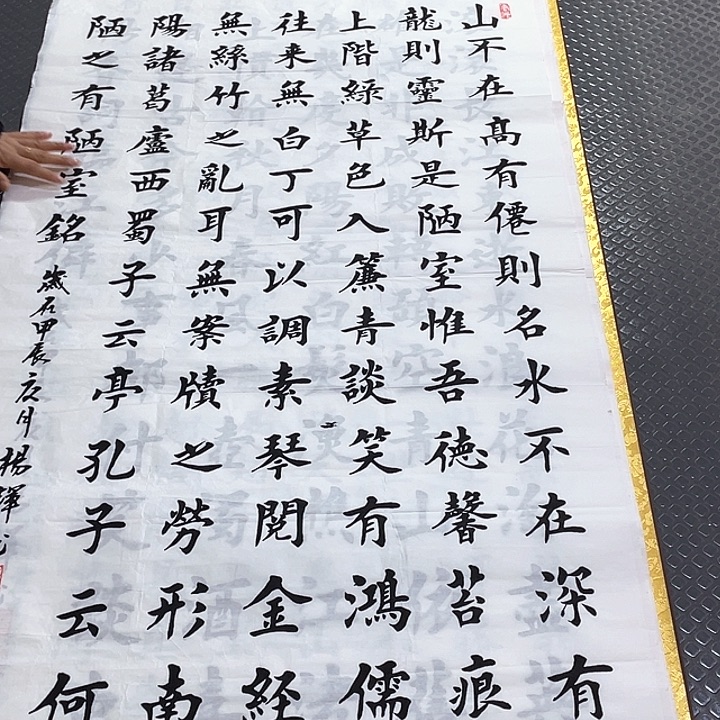 山不在髙有僊則名水不在深有
龍則靈斯是陋室惟吾德馨苔痕
上階綠草色入簾青談笑有鴻儒
往来無白丁可以調素琴閱金經
無絲竹之亂耳無案牘之勞形南
陽諸葛廬西蜀子云亭孔子云何
陋之有陋室銘
歲在甲辰夏月楊